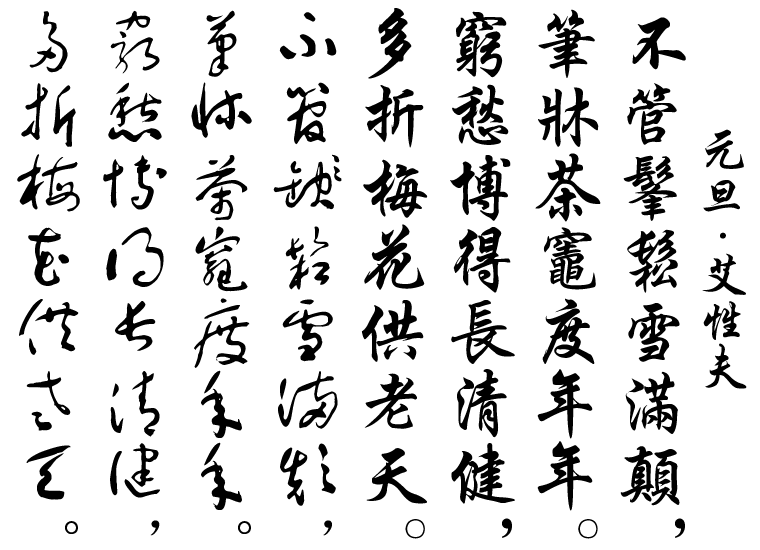 元旦·艾性夫
不管髼鬆雪滿顛，
筆牀茶竈度年年。
窮愁博得長清健，
多折梅花供老天。
不管髼鬆雪滿顛，
筆牀茶竈度年年。
窮愁博得長清健，
多折梅花供老天。